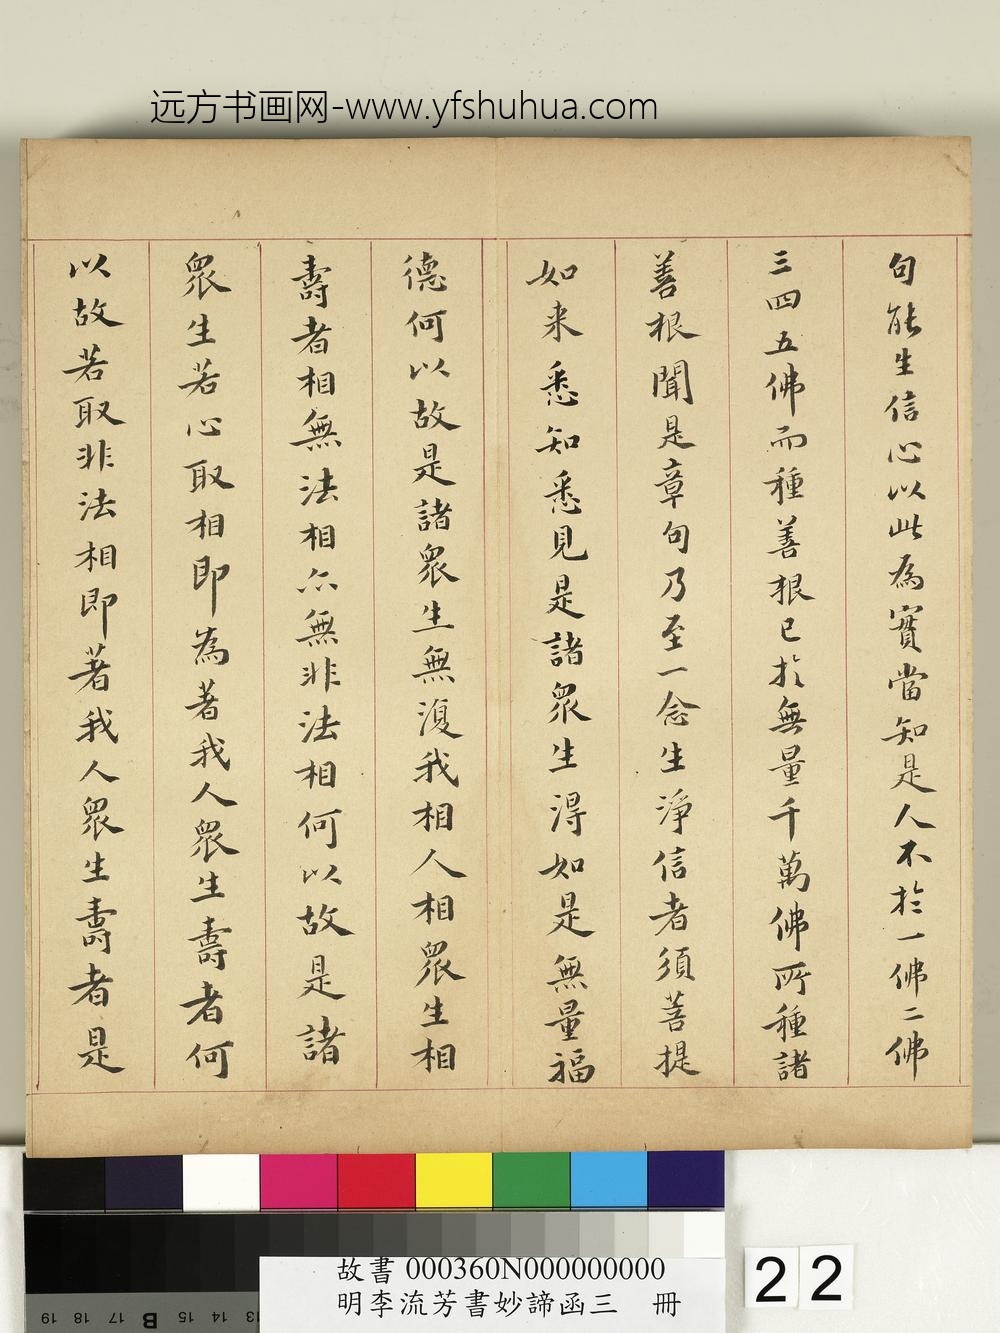 远方书画网-www.yfshuhua.com
句能生信心以此為實當知是人不於一佛二佛
三四五佛而種善根已於無量千萬佛所種諸
善根聞是章句乃至一念生淨信者須菩提
如来悉知悉見是諸眾生得如是無量福
德何以故是諸眾生無復我相人相眾生相
壽者相無法相亦無非法相何以故是諸
眾生若心取相即為著我人眾生壽者何
以故若取非法相即著我人眾生壽者是
故書 000360N000000000
明李流芳書妙諦函三 冊
22
19 18 17 B 15 14 13